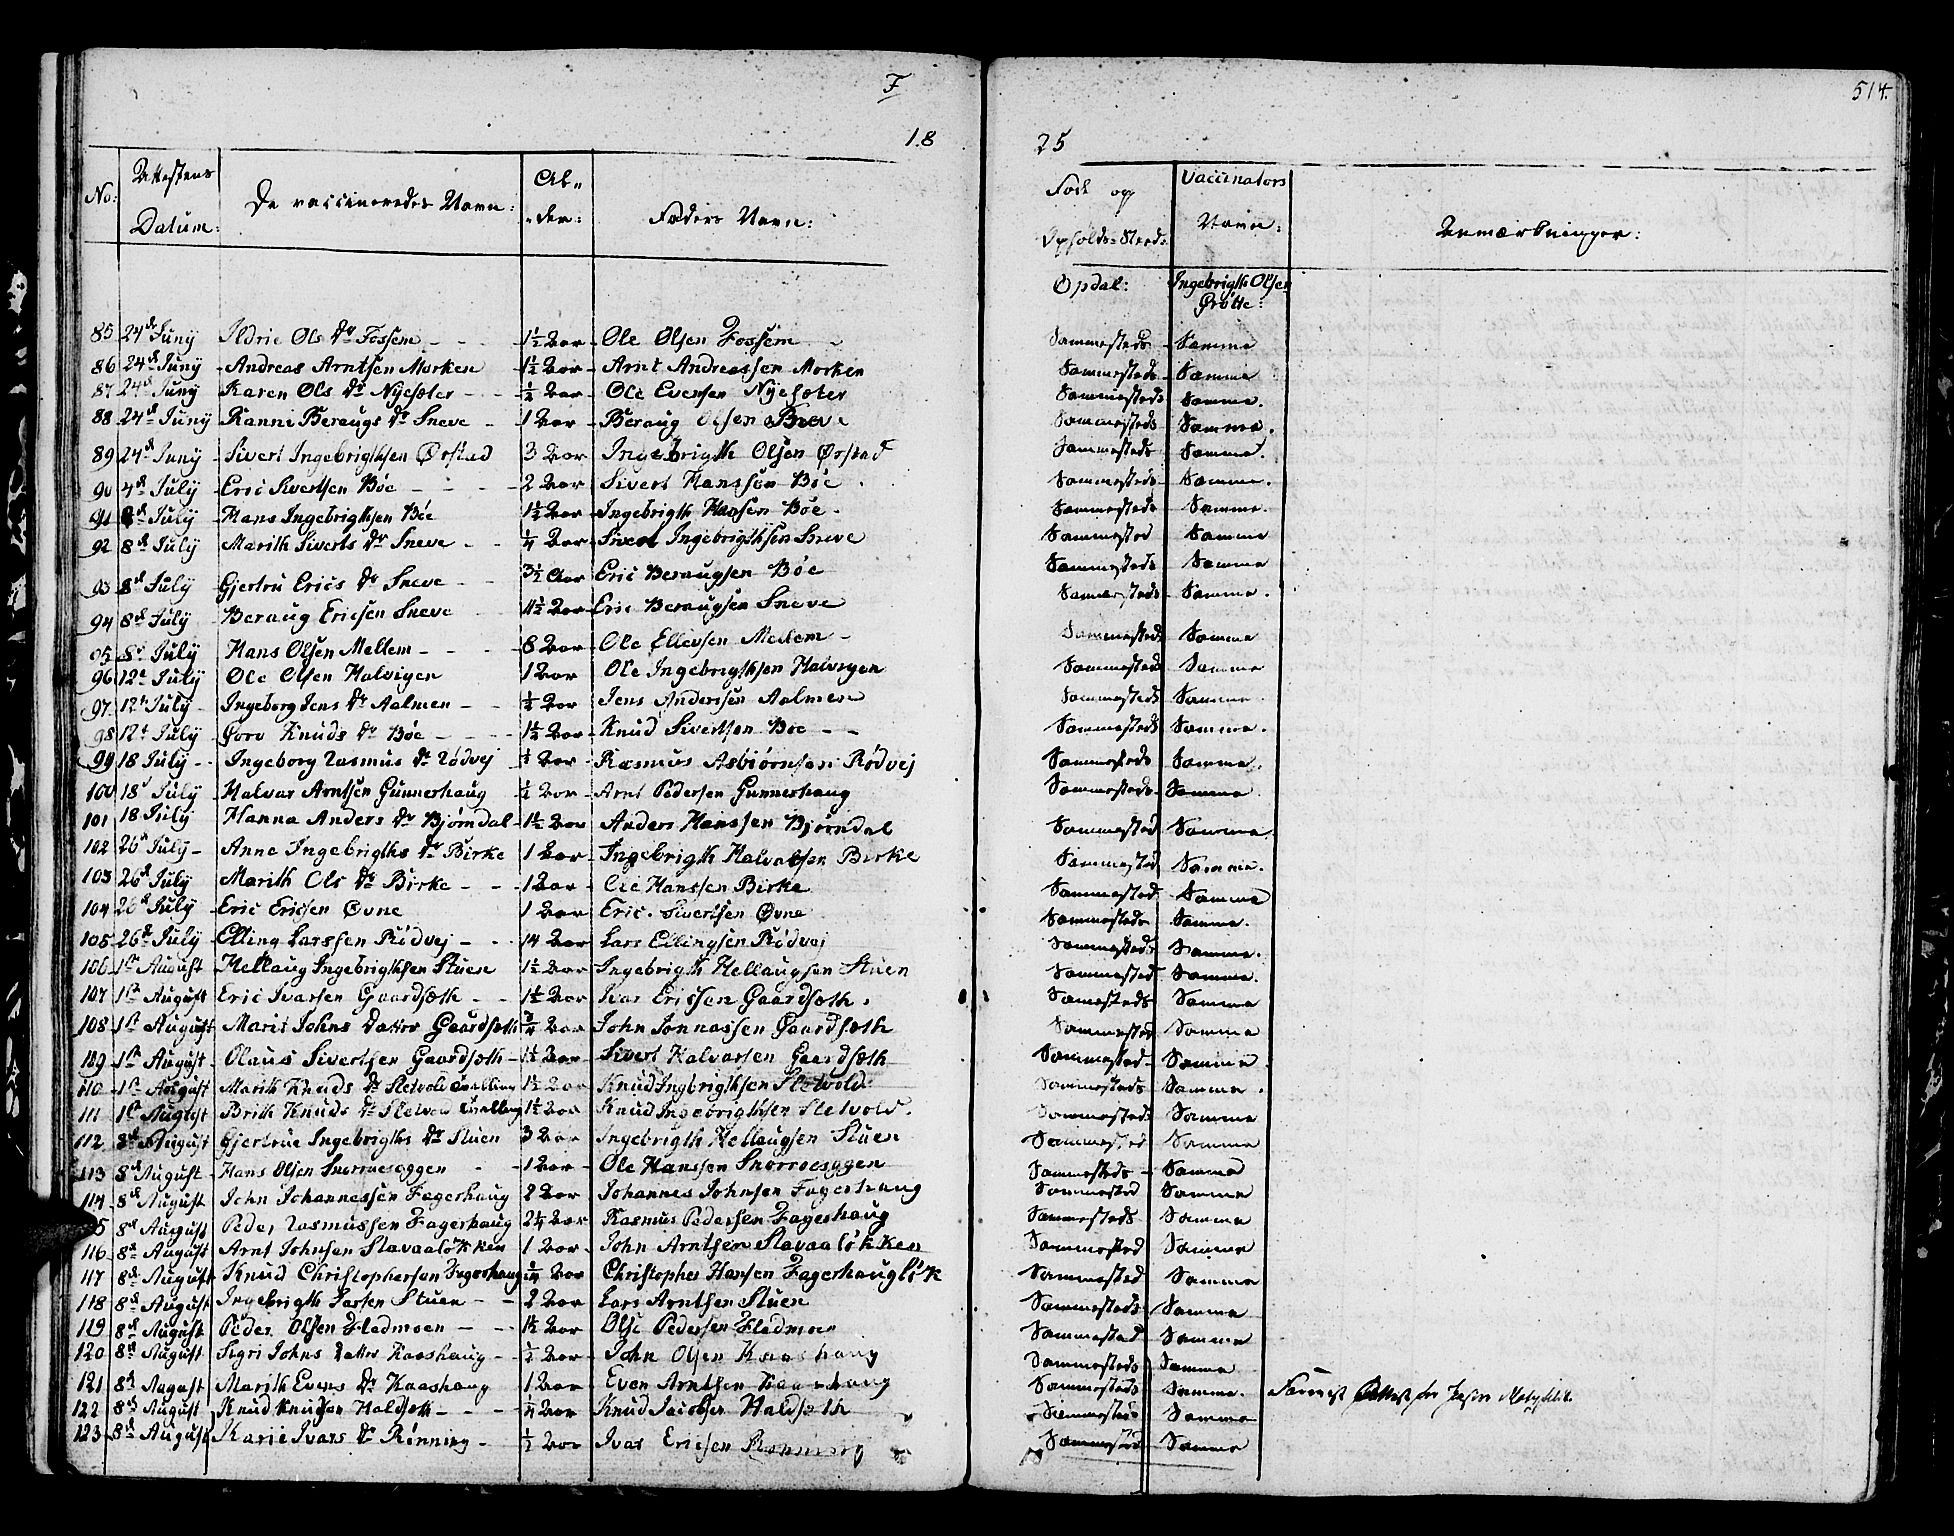 F
514.
18 25
No: Attestens Datum: De vaccineredes Navn: Al„ „der: Faders Navn: Føde og Opholds-Sted: Vaccinators Navn: Anmærkninger:
Opdal: Ingebrigth Olsen
Grøtte:
85 24de Juny Ildrie Ols Dr Fossem 1½ Aar Ole Olsen Fossem Sammesteds Samme
86 24de Juny Andreas Arntsen Morken 1½ Aar Arnt Andreassen Morken Sammesteds Samme
87 24de Juny Karen Ols Dr Nyesæter ½ Aar Ole Evensen Nyesæter Sammesteds Samme.
88 24de Juny Ranni Beraugs Dr Sneve 1 Aar Beraug Olsen Sneve Sammesteds Samme.
89 24de Juny Sivert Ingebrigthsen Ørstad 3 Aar Ingebrigth Olsen Ørstad Sammesteds Samme.
90 4de July Eric Sivertsen Bøe 2 Aar Sivert Hanssen Bøe Sammesteds Samme.
91 8de July Hans Ingebrigthsen Bøe 1½ Aar Ingebrigth Hansen Bøe Sammesteds Samme.
92 8de July Marith Siverts Dr Sneve ¼ Aar Sivert Ingebrigthsen Sneve Sammested Samme
93 8de July Gjertru Erics Dr Sneve 3½ Aar Eric Beraugsen Bøe Sammesteds Samme
94 8de July Beraug Ericsen Sneve 1½ Aar Eric Beraugsen Sneve Sammesteds Samme.
95 8de July Hans Olsen Mellem 8 Aar Ole Ellevsen Mellem Sammested Samme
96 12te July Ole Olsen Halvigen 1 Aar Ole Ingebrigthsen Halvigen Sammesteds Samme
97 12te July Ingeborg Jens Dr Aalmen ½ Aar Jens Anderssen Aalmen Sammesteds Samme
98 12te July Goro Knuds Dr Bøe 1½ Aar Knud Sivertsen Bøe Sammesteds Samme.
99 18 July Ingeborg Rasmus Dr Rødvej ½ Aar Rasmus Asbiørnsen Rødvej Sammesteds Samme.
100 18 July Halvar Arntsen Gunnerhaug ½ Aar Arnt Pedersen Gunnerhaug Sammesteds Samme
101 18 July Hanna Anders Dr Bjørndal 1½ Aar Anders Hanssen Bjørndal Sammested Samme.
102 26de July Anne Ingebrigths Dr Birke 1 Aar Ingebrigth Halvorsen Birke Sammested Samme.
103 26de July Marith Ols Dr Birke 1 Aar Ole Hanssen Birke Sammested Samme
104 26de July Eric Ericsen Øvne 1 Aar Eric Sivertsen Øvne Sammesteds Samme.
105 26de July Elling Larssen Rødvej 14 Aar Lars Ellingsen Rødvej Sammesteds Samme.
106 1ste August Hellaug Ingebrigthsen Stuen 1½ Aar Ingebrigth Hellaugsen Stuen Sammested Samme.
107 1ste August Eric Ivarsen Gaardsæth 1½ Aar Ivar Ericsen Gaardsæth. Sammesteds Samme
108 1ste August Marit Johns Datter Gaardsæth ¾ Aar John Jonnassen Gaardsæth Sammested Samme
109 1ste August Olaus Sivertsen Gaardsæth 1½ Aar Sivert Halvarsen Gaardsæth Sammested Samme.
110 1ste August Marith Knuds Dr Sletvold Tvilling 1½ Aar Knud Ingbrigthsen Sletvold Sammesteds Samme.
111 1ste August Brith Knuds Dr Sletvold Tvilling 1½ Aar Knud Ingebrigthsen Sletvold. Sammesteds Samme
112 8de August Gjertrue Ingebrigths Dr Stuen 3 Aar Ingebrigth Hellaugsen Stuen Sammested Samme
113 8de August Hans Olsen Snorroeseggen 1 Aar Ole Hanssen Snorroeseggen Sammesteds Samme
114 8de August John Johannessen Fagerhaug 2 Aar Johannes Johnsen Fagerhaug Sammested Samme
115 8de August Peder Rasmussen Fagerhaug 2¼ Aar Rasmus Pedersen Fagerhaug Sammesteds Samme
116 8de August Arnt Johnsen Slavaaløkken 1 Aar John Arntsen Slavaaløkken Sammested Samme
117 8de August Knud Christophersen Fagerhaug ¼ Aar Christopher Hansen Fagerhaugløk Sammested Samme
118 8de August Ingebrigth Larsen Stuen 2 Aar Lars Arntsen Stuen Sammesteds Samme
119 8de August Peder Olsen Fladmoen 1½ Aar Olse Pedersen Fladmoen Sammested Samme
120 8de August Sigri Johns Datter Kaashaug ½ Aar John Olsen Kaashaug Sammesteds Samme
121 8de August Marith Evens Dr Kaashaug 1 Aar Even Arntsen Kaashaug Sammesteds Samme.
122 8de August Knud Knudsen Haldsæth ¼ Aar Knud Jacobsen Haldsæth Sammesteds Samme
123 8de August Karie Ivars Dr Rønning ½ Aar Ivar Ericsen Rønning Sammested Samme